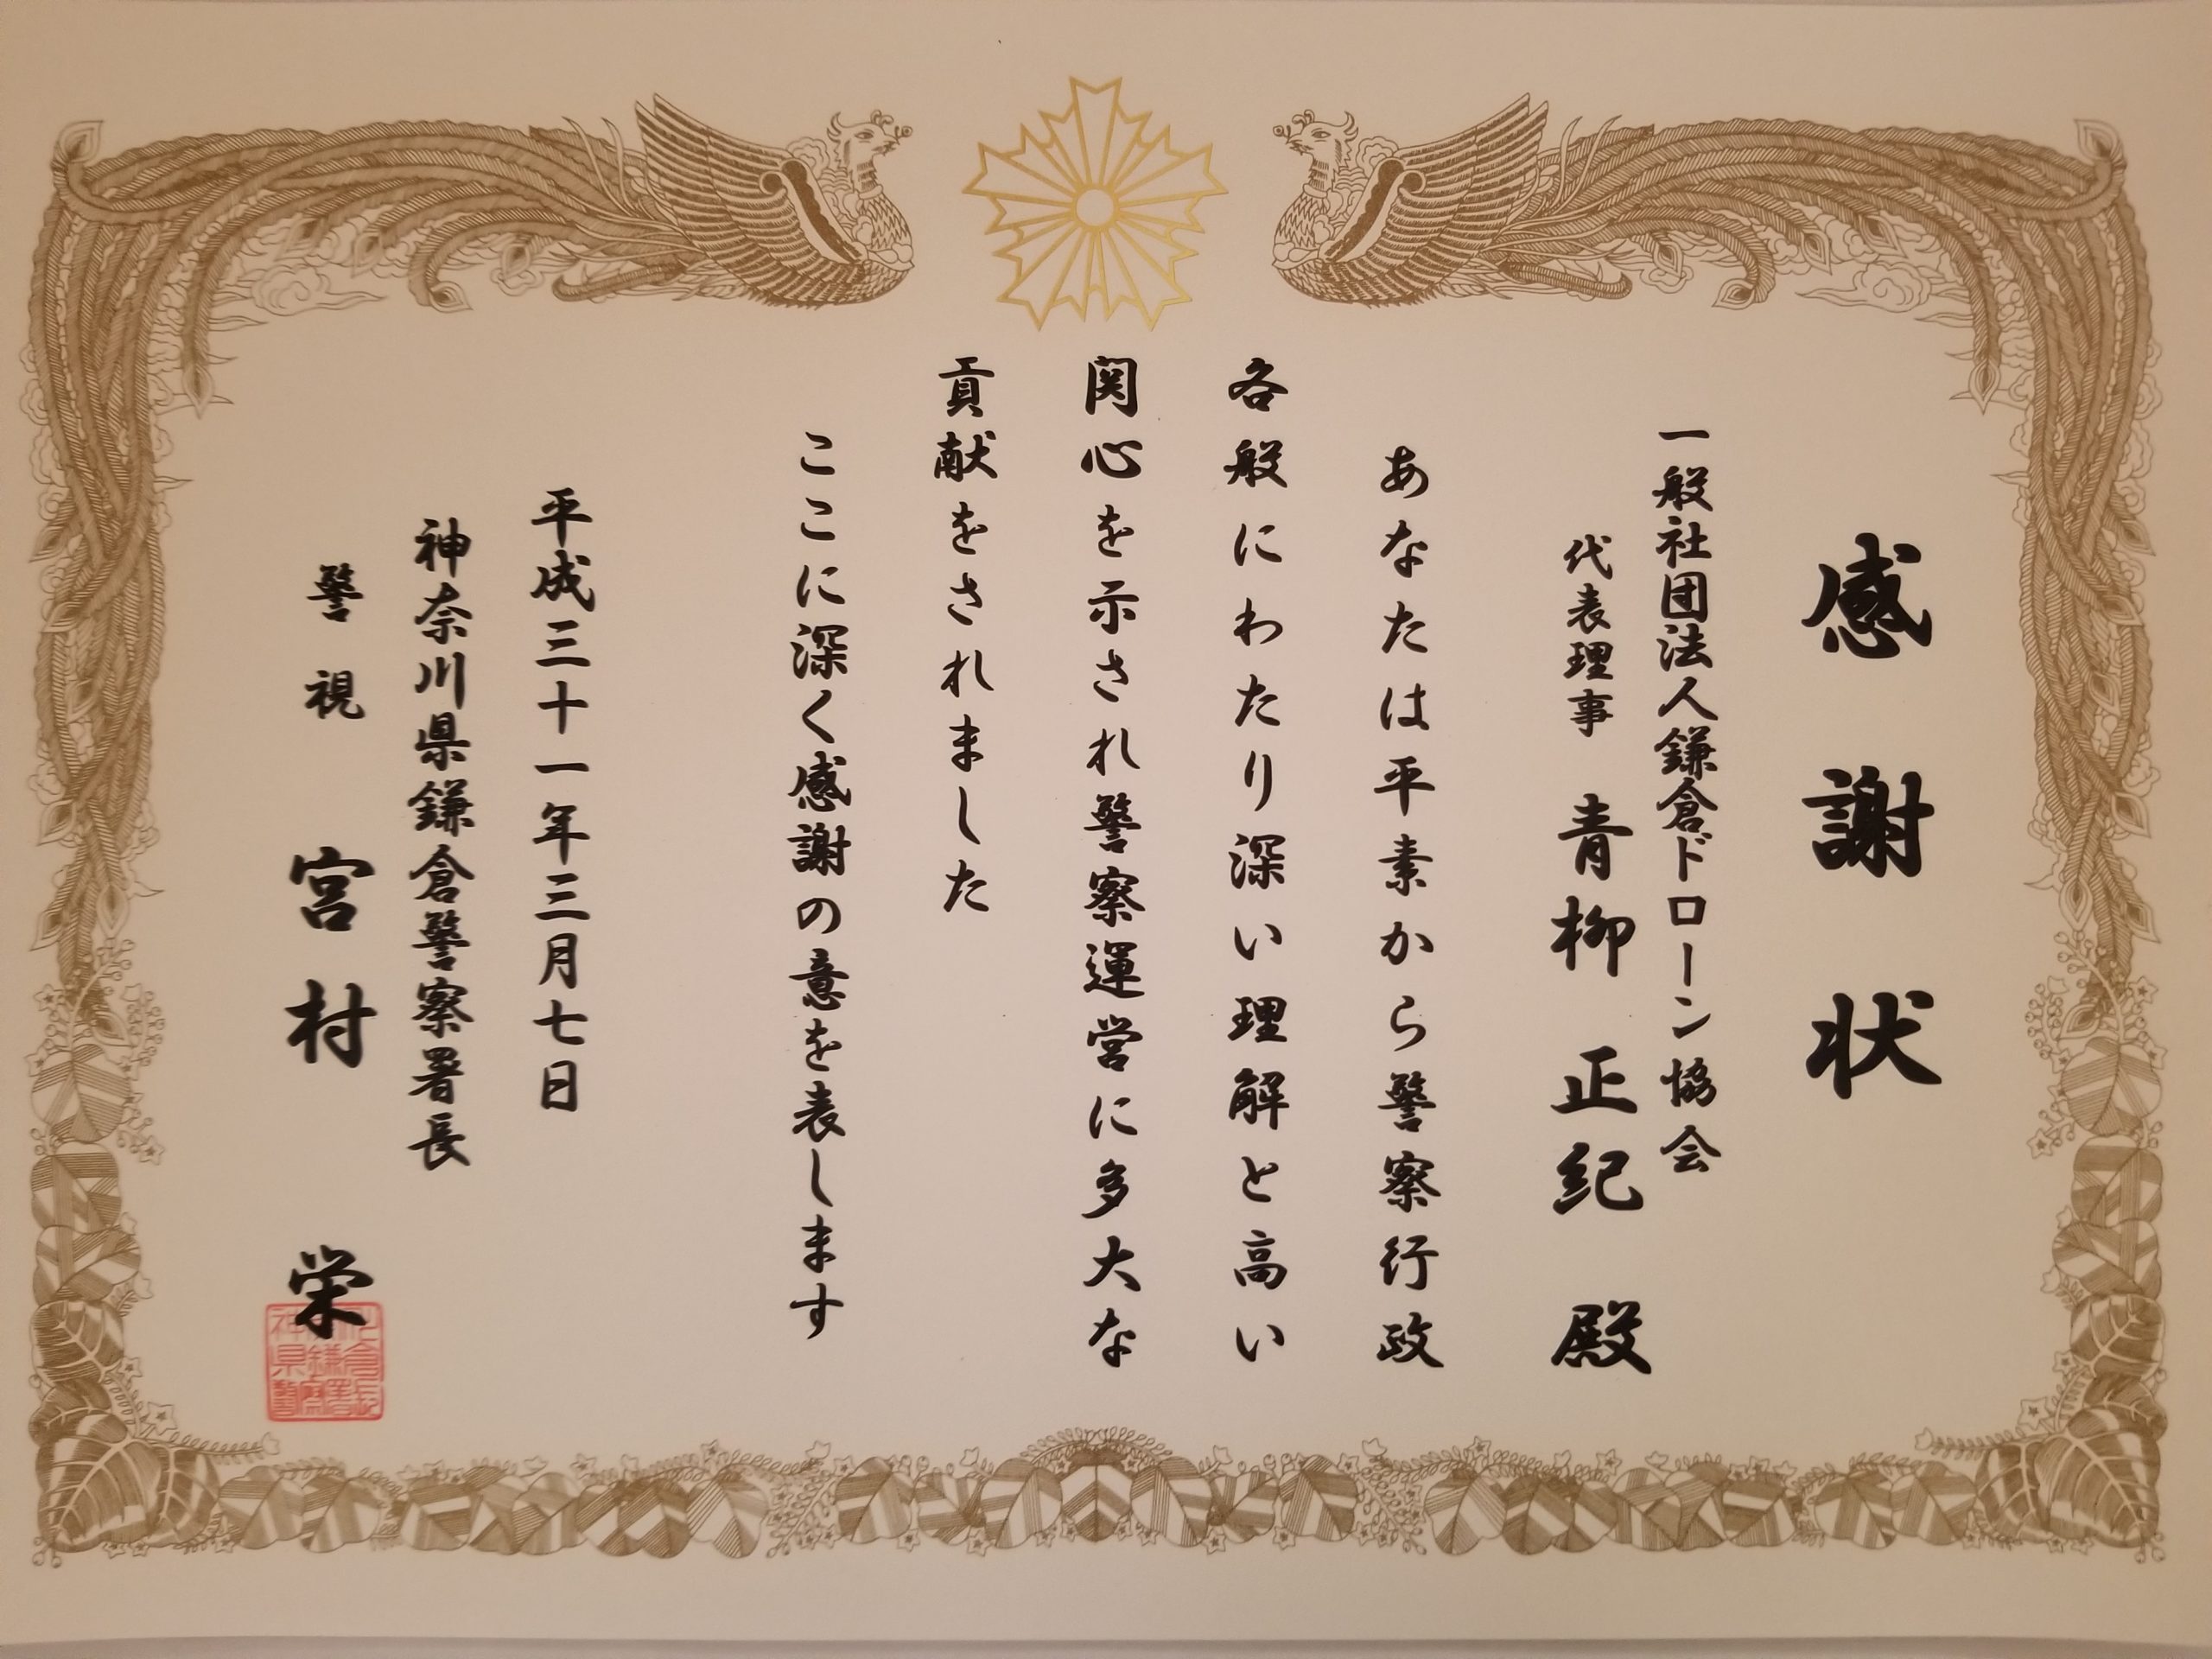 感謝状
一般社団法人鎌倉ドローン協会
代表理事 青柳正紀 殿
あなたは平素から警察行政
各般にわたり深い理解と高い
関心を示され警察運営に多大な
貢献をされました
ここに深く感謝の意を表します
平成三十一年三月七日
神奈川県鎌倉警察署長
警視 宮村 栄